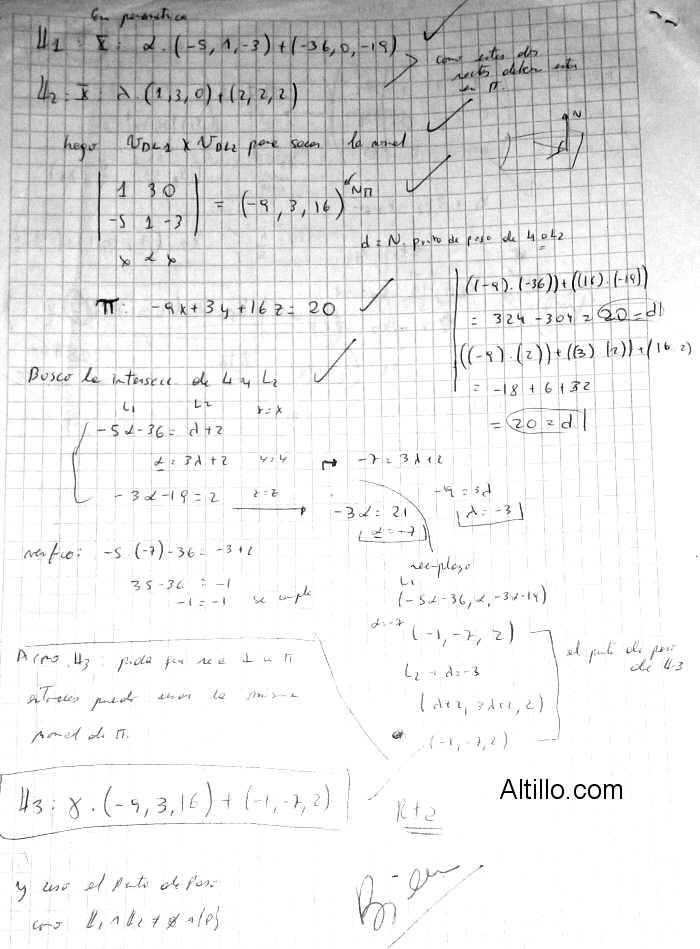 En parametrica
L1 : X: α.(-5,1,-3)+(-36,0,-19)
L2: X: λ.(1,3,0)+(2,2,2)
como estas dos
rectas deben estar
en π.
luego VDL1 x VDL2 para sacar la normal
N
| 1 3 0 |
| -5 1 -3 | = (-9,3,16) Nπ
x x x
d = N. punto de paso de L1 o L2
π: -9x+3y+16z=20
((-9).(-36))+((16).(-19))
= 324-304=20=d
((-9).(2))+((3)(2))+(16.2)
= -18+6+32
= 20=d
Busco la intersecc de L1 y L2
L1 L2 x=x
-5α-36=λ+2
α=3λ+2 y=y → -7=3λ+2
-3α-19=2 z=z → -3α=21
α=-7
-9=3λ
λ=-3
verifico: -5.(-7)-36=-3+2
35-36=-1
-1=-1 se cumple
reemplazo
L1
(-5α-36,α,-3α-19)
α=-7
(-1,-7,2)
L2 λ=-3
(λ+2,3λ+2,2)
(-1,-7,2)
el punto de paso
de L3
Como L3: pide que sea ⊥ a π
entonces puedo usar la misma
normal de π.
L3: γ.(-9,3,16)+(-1,-7,2)
Altillo.com
Rta
y uso el Punto de Paso
como L1 ∩ L2
Bien